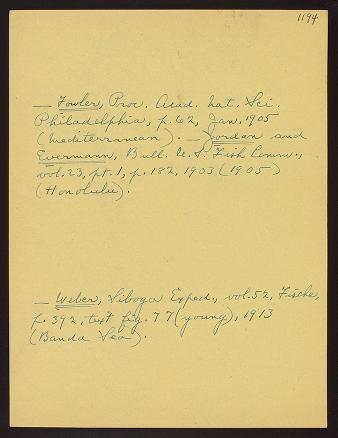 1194
— Fowler, Proc. Acad. Nat. Sci.
Philadelphia, p. 62, Jan. 1905
(Mediterranean). — Jordan and
Evermann, Bull. U.S. Fish Comm.,
vol. 23, pt. 1, p. 182, 1903 (1905)
(Honolulu).
— Weber, Siboga Exped., vol. 52, Fische,
p. 392, text fig. 77 (young), 1913
(Banda Sea).